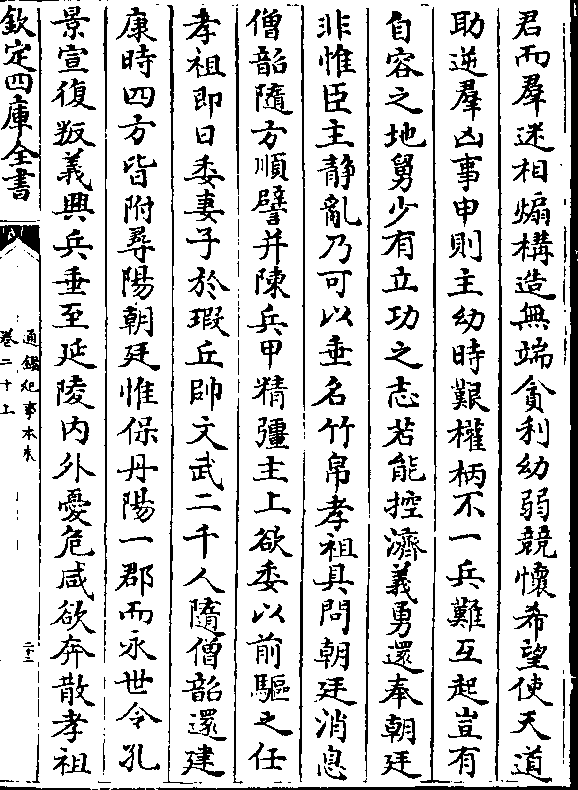 君而羣迷相煽構造無端貪利幼弱競懷希望使天道
助逆羣凶事申則主幼時艱權柄不一兵難互起豈有
自容之地舅少有立功之志若能控濟義勇還奉朝廷
非惟臣主静亂乃可以垂名竹帛孝祖具問朝廷消息
僧韶隨方順譬并陳兵甲精彊主上欲委以前驅之任
孝祖即日委妻子於瑕丘帥文武二千人隨僧韶還建
康時四方皆附尋陽朝廷惟保丹陽一郡而永世令孔
景宣復叛義興兵垂至延陵内外憂危咸欲奔散孝祖
欽定四庫全書
通鑑紀事本末
卷二十上
二十三